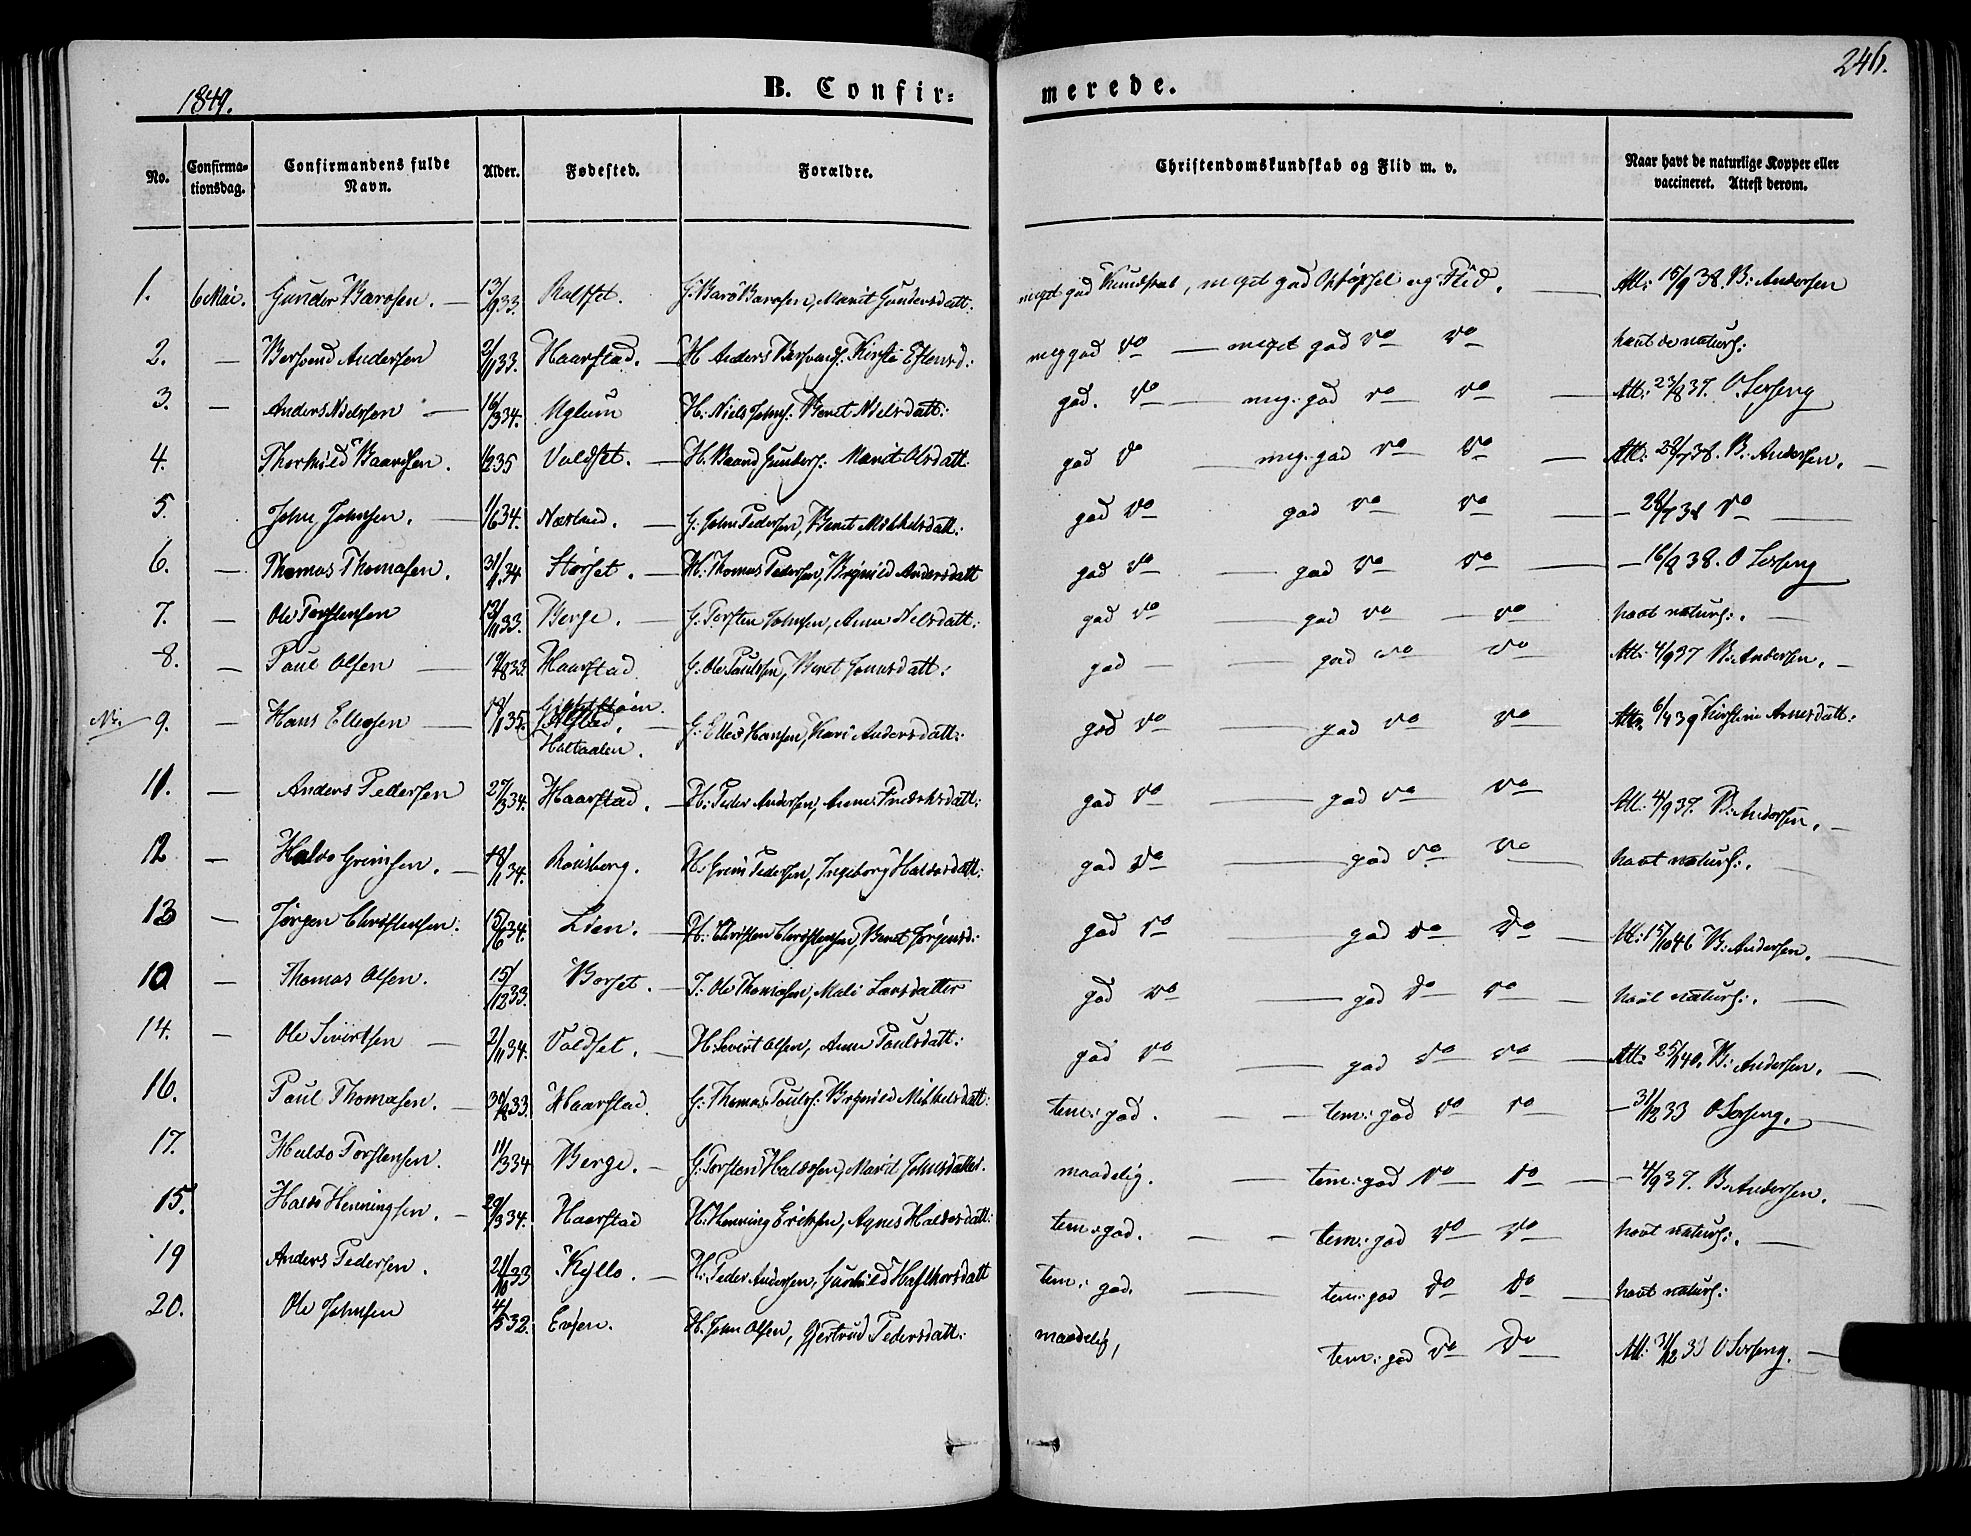 246.
1849.
B. Confir- merede.
No. Confirma-tionsdag. Confirmandens fulde Navn. Alder. Fødested. Forældre. Christendomskundskab og Flid m. v. Naar havt de naturlige Kopper eller vaccineret. Attest derom.
1. 6 Mai. Gunder Baardsen. 13/9 33. G: Baard Baardsen, Marit Gundersdatt: meget god Kundskab, meget god Opførsel og Flid. Att: 15/9 38. B: Andersen
2. — Anderssen 2/11 33. Haarstad. — H Anders Kirsti Estensd: meg god do — meget god do do havt de naturl:
3. — Anders Nielssen — 16/3 34. Uglum H: Niels Johns: Beret Nielsdatt: god. do — meg: god do do — Att: 23/8 37. O Sesseng
4. Thorkild Baardsen. Voldset. — H. Baard Gunders: Marit Olsdatt: god do — meg: god do do — Att: 28/7 38. B. Andersen. —
5. John Johnsen. — 1/6 34. — G: John Pedersen, Beret Mikkelsdatt: god do god do do — 28/7 38 do —
6. — Thomas Thomasen. 31/1 34 Storset. — H: Thomas Pedersen, Brynild Andersdatt god do — god do do — 16/8 38. O Sesseng
7. — Ole Torstensen 13/11 33. Berge. — G: Torsten Johnsen, Anne Nielsdatt: god do — god do do havt naturl:. —
8. — Paul Olsen — 33. Haarstad G: Ole Paulsen, Beret Jonsdatt: god — — god do do Att: 4/9 37 B: Andersen. —
9. — Hans Ellevsen — 18/1 35. Aalstad, Holtaalen. — G: Ellev Hansen, Kari Andersdatt: god do god do do Att: 6/4 39 Kirstine Arnesdatt:
11. — Anders Pedersen 27/3 34. Haarstad. — H: Peder Andersen, Anne Fredriksdatt: god do — god do do Att: 4/9 37. B: Andersen. —
12 — Haldo Grimsen. — 18/1 34. Rønsberg. H: Grim Pedersen, Ingeborg Haldosdatt: god do — god do do havt naturl:. —
13 — Jørgen Christensen: 15/6 34. Lien. — H: Christen Christensen, Beret Jørgensd: god do god do do — Att: 15/10 46 B: Andersen. —
10 — Thomas Olsen. 15/12 33. Borset. — I: Ole Thomasen, Mali Larsdatter god do — god do do — havt naturl:. —
14. — Ole Sivertsen — 2/11 34. Voldset. — H: Sivert Olsen, Anne Paulsdatt: god do — god do do — Att: 25/1 40. B: Andersen. —
16. Paul Thomasen. — 33. Haarstad. G: Thomas Pauls: Brynild Mikkelsdatt: tem: god. — — tem: god do do — 31/12 33 O Sesseng. —
17. Haldo Torstensen. 11/3 34 Berge. — G: Torsten Haldosen, Marit Johnsdatter. maadelig. — tem: god do do — — 4/9 37. B: Andersen. —
15. Haldo Henningsen. — 29/3 34. Haarstad H: Henning Eriksen, Agnes Haldosdatt: tem: god. — — tem: god do do havt naturl:. —
19 Anders Pedersen. 21/10 33 Kyllo. — H: Peder Andersen, Gunhild Hafthorsdatt tem: god. — tem: god do do — havt naturl:
20. Ole Johnsen 4/5 32. Evjen. H. John Olsen, Gjertrud Pedersdatt: maadelig, tem: god do do Att: 31/12 33 O Sesseng. —